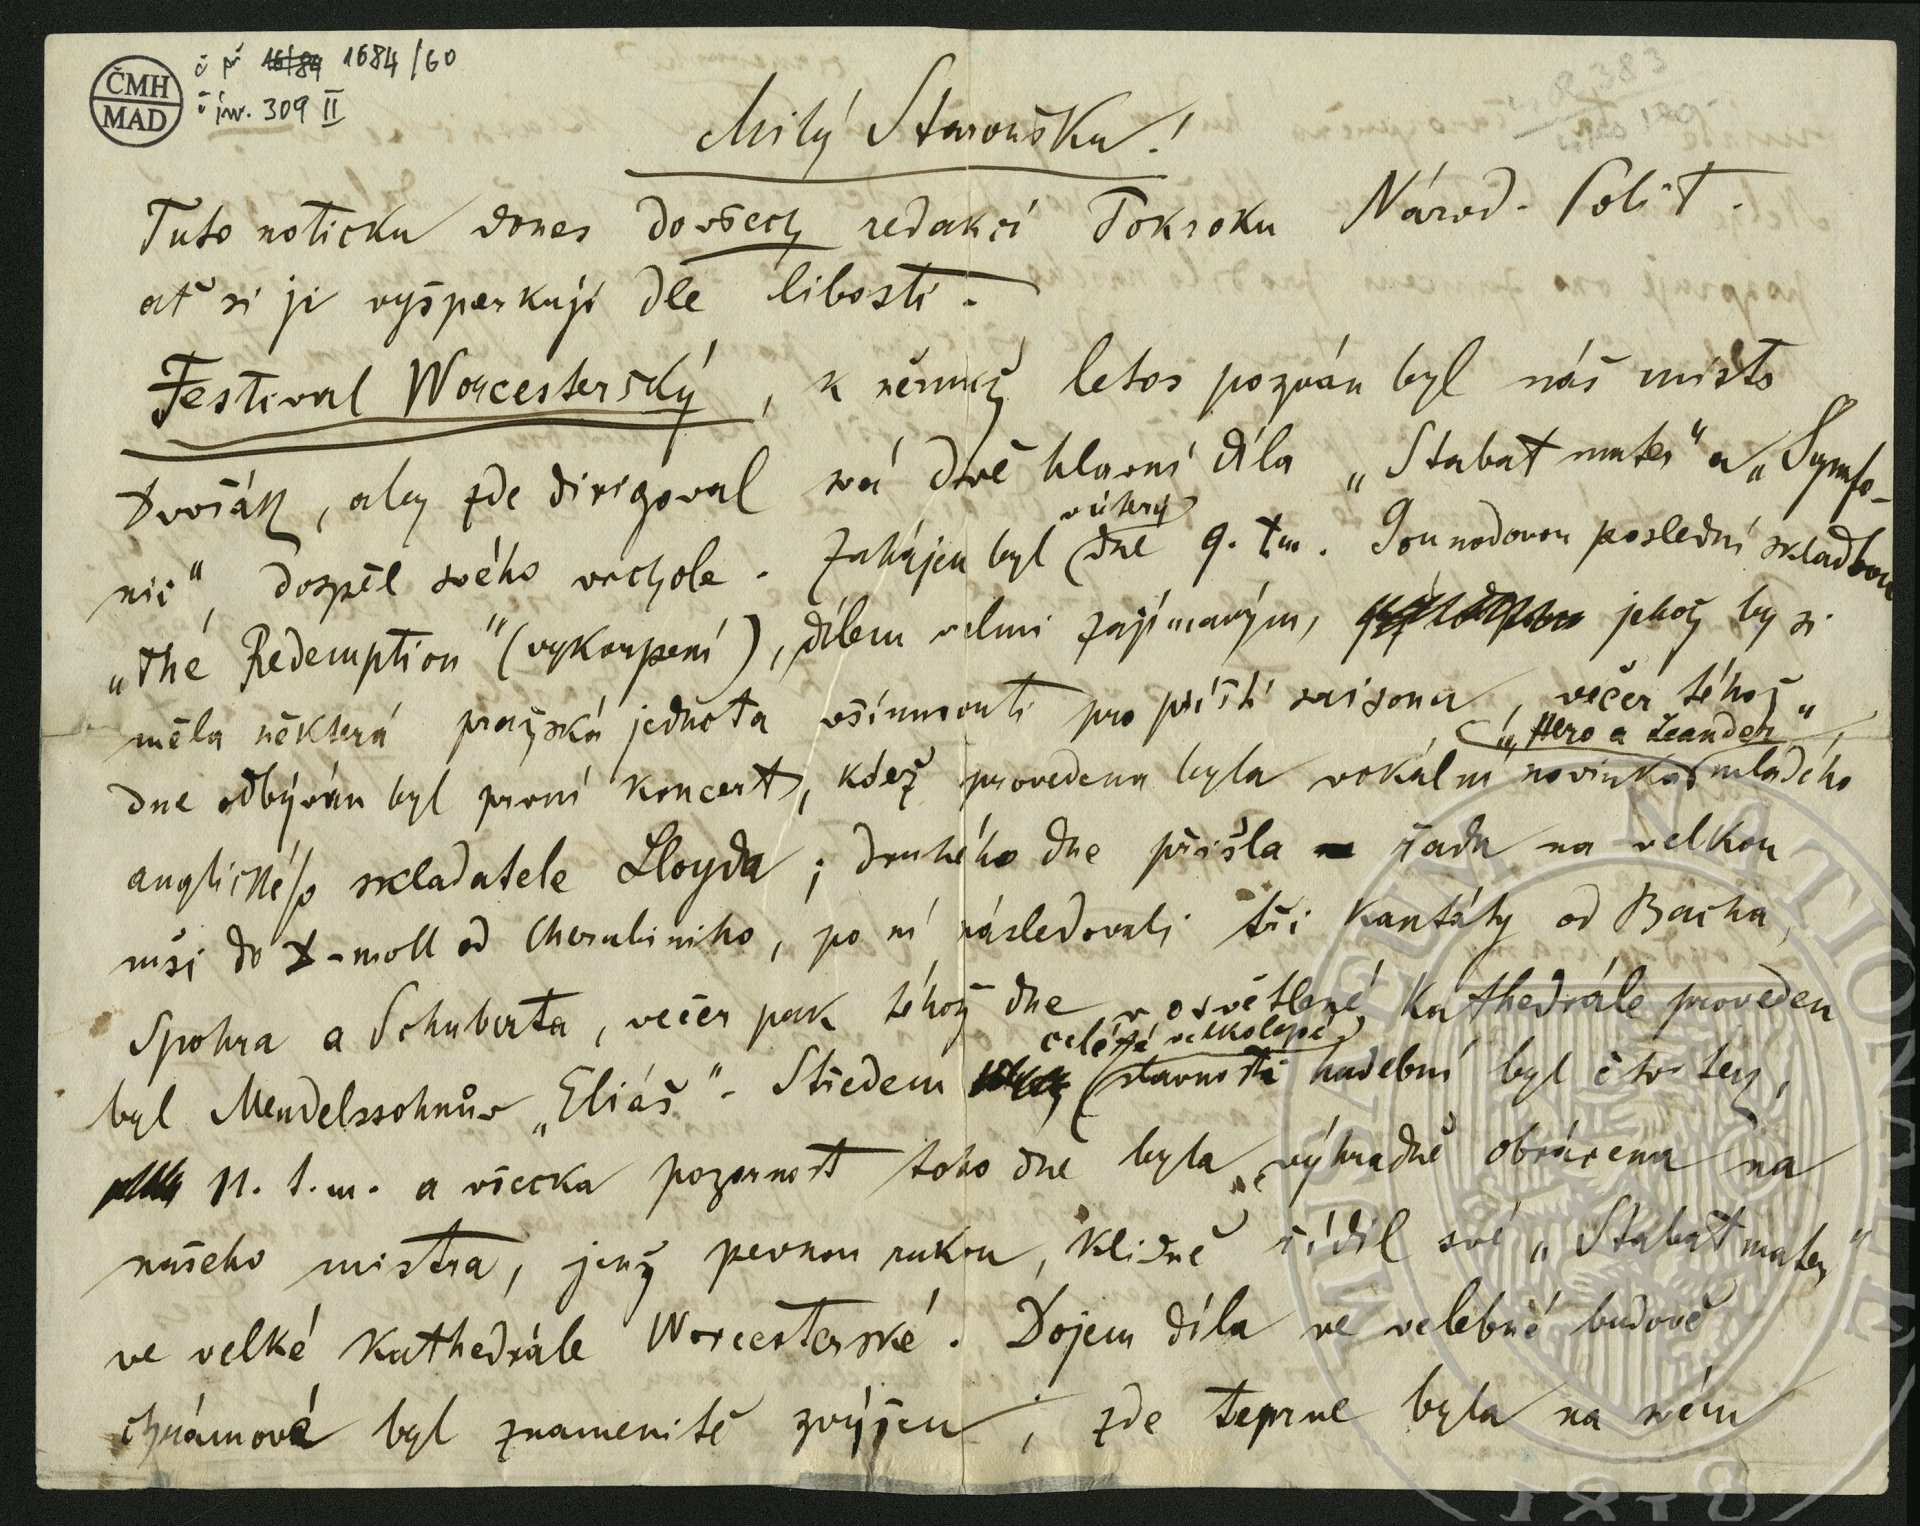 ČMH
MAD
č př 16/84 1684/60
č inv. 309 II
Milý Staroušku!
Tuto noticku dones do všech redakcí Pokroku Národ. Polit.
ať si ji vyšperkují dle libosti.
Festival Worcesterský, k němuž letos pozván byl náš mistr
Dvořák, aby zde dirigoval svá dvě hlavní díla „Stabat mater" a „Symfo-
nii", dospěl svého vrchole. Zahájen byl v úterý dne 9. t.m. Gounodovou poslední skladbou
„the Redemption" (vykoupení), dílem velmi zajímavým, jehož by si
měla některá pražská jednota všimnouti pro příští saisonu, večer téhož
dne odbýván byl první koncert, kdež provedena byla vokální novinka „Hero a Leander" mladého
anglického skladatele Lloyda; druhého dne přišla řada na velkou
mši do D-moll od Cherubiniho, po ní následovali tři kantáty od Bacha,
Spohra a Schuberta, večer pak téhož dne v osvětlené kathedrále proveden
byl Mendelssohnův „Eliáš". Středem celé té velkolepé slavnosti hudební byl čtvrtek,
11. t.m. a všecka pozornost toho dne byla výhradně obrácena na
našeho mistra, jenž pevnou rukou, klidně řídil své „Stabat mater"
ve velké kathedrále Worcesterské. Dojem díla ve velebné budově
chrámové byl znamenitě zvýšen, zde teprve byla na svém
MUSEUM NATIONALE
1818